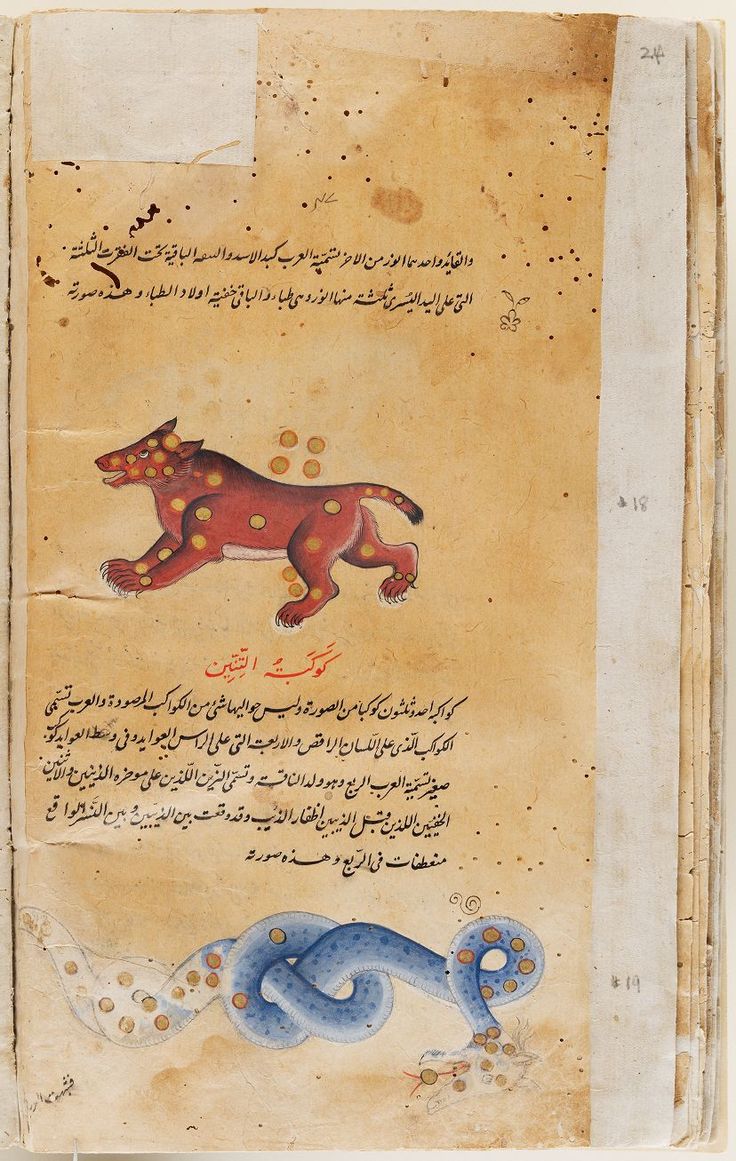 24
والقائد واحدهما انور من الاخر تسمية العرب كبد الاسد والسعه الباقية تحت الثلثة
التى على اليد اليسرى ثلثة منها انور وهى ظباء والباقى خفية اولاد الظباء وهذه صورته
#18
كَوكَبَة التِنّين
كواكبه احد وثلثون كوكبا من الصورة وليس حواليها شئ من الكواكب المرصودة والعرب تسمّى
الكواكب الّذى على اللسان الراقص والاربعة التى على الراس العوايد وفى وسط العوايد كوكب
صغير تسمية العرب الربع وهو ولد الناقة وتسمّى النيّرين اللذين على موخره الذيبين والاثنين
الخفيين اللذين قبل الذيبين اظفار الذيب وقد وقعت بين الذيبين وبين النسر الواقع
منعطفات فى الربع وهذه صورته
#19